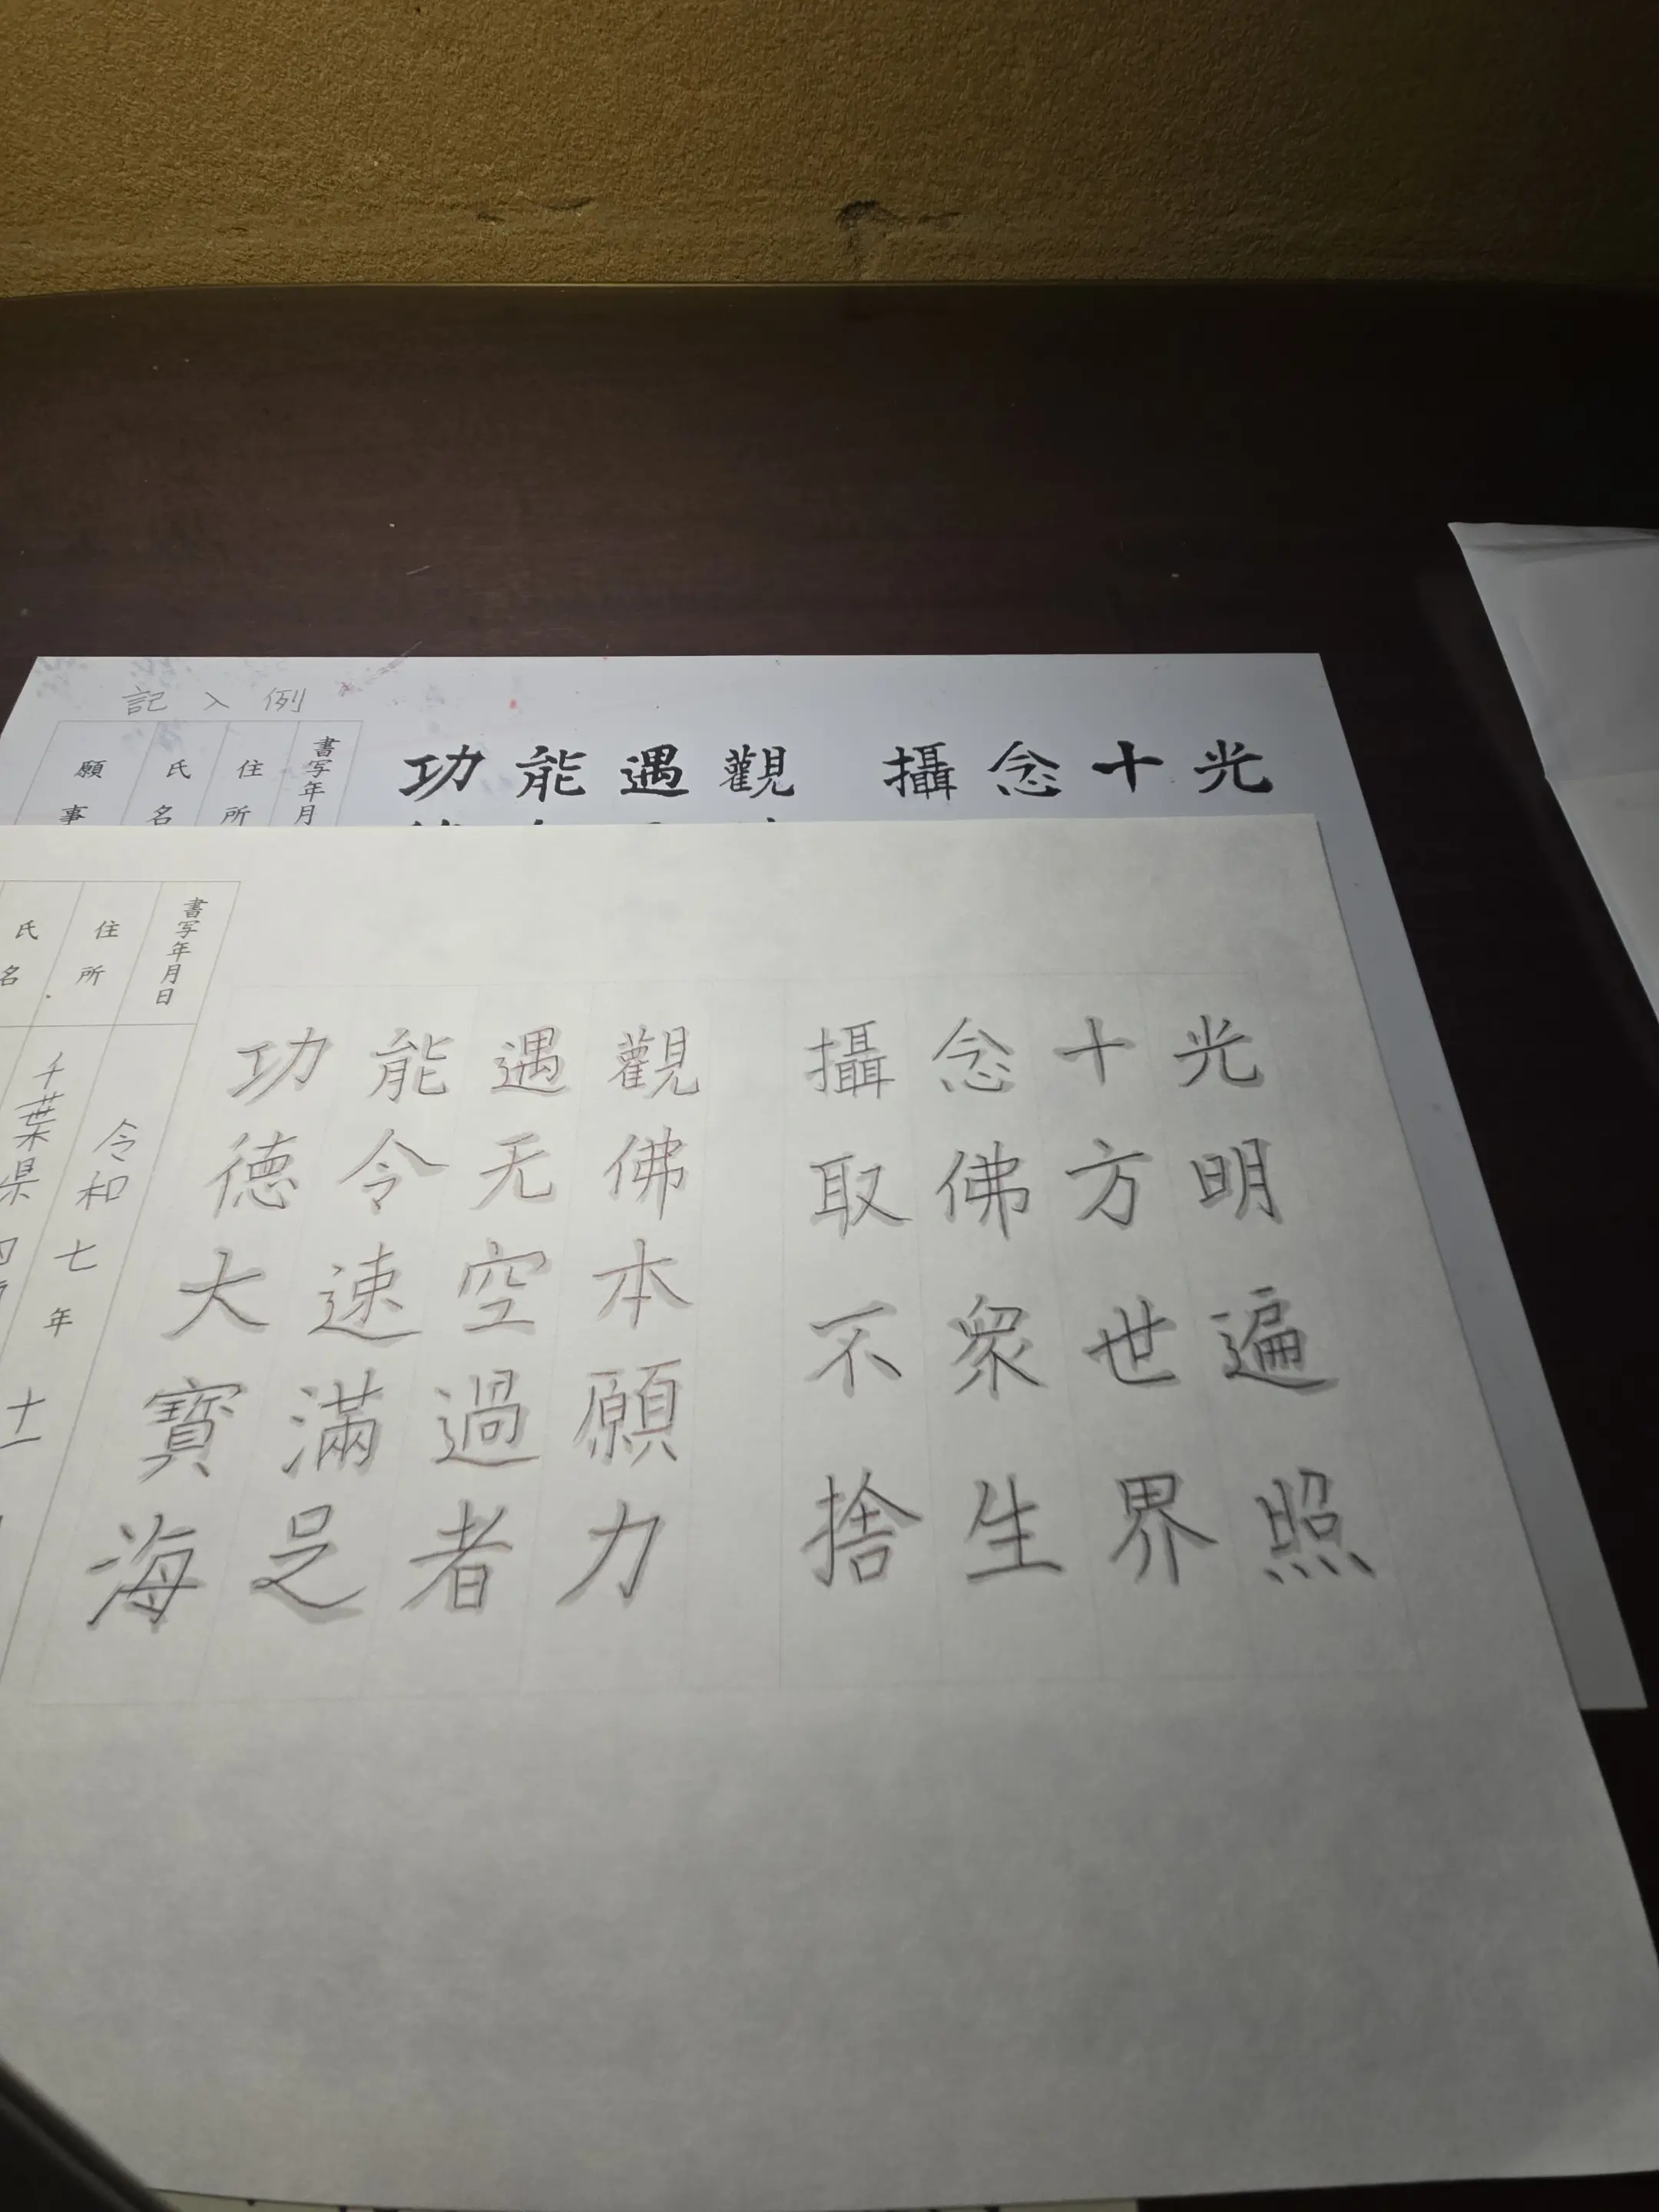 光明遍照
十方世界
念佛衆生
攝取不捨
觀佛本願力
遇无空過者
能令速滿足
功德大寶海
書写年月日
令和七年十一
住所
千葉県四
氏名
記入例
光
十
念
攝
觀
遇
能
功
書写年月
住所
氏名
願事